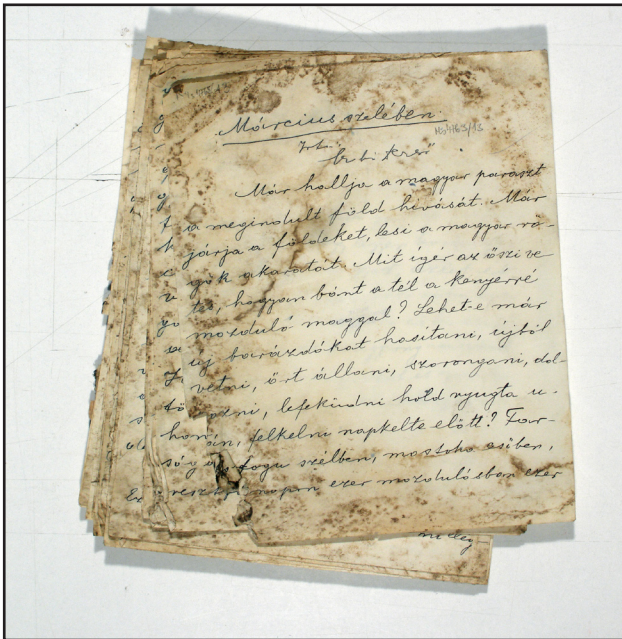 Március szelében.
Irta.
Már hallja a magyar paraszt
a megindult föld hivását. Már
járja a földeket, lesi a magyar rö-
gök akaratát. Mit igér az őszi ve
tés, hogyan bánt a tél a kenyérré
mozduló maggal? Lehet-e már
uj barázdákat hasitani, újból
vetni, őrt állani, szorongani, dol-
lefeküdni hold nyugta u-
felkelni napkelte előtt?
fogu szélben, mostoha esőben,
napon ezer mozdulásban ezer